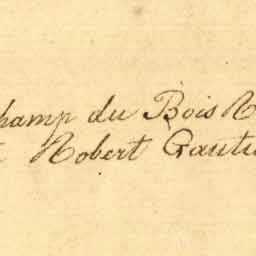 hamp du Bois R
t Robert Gautie